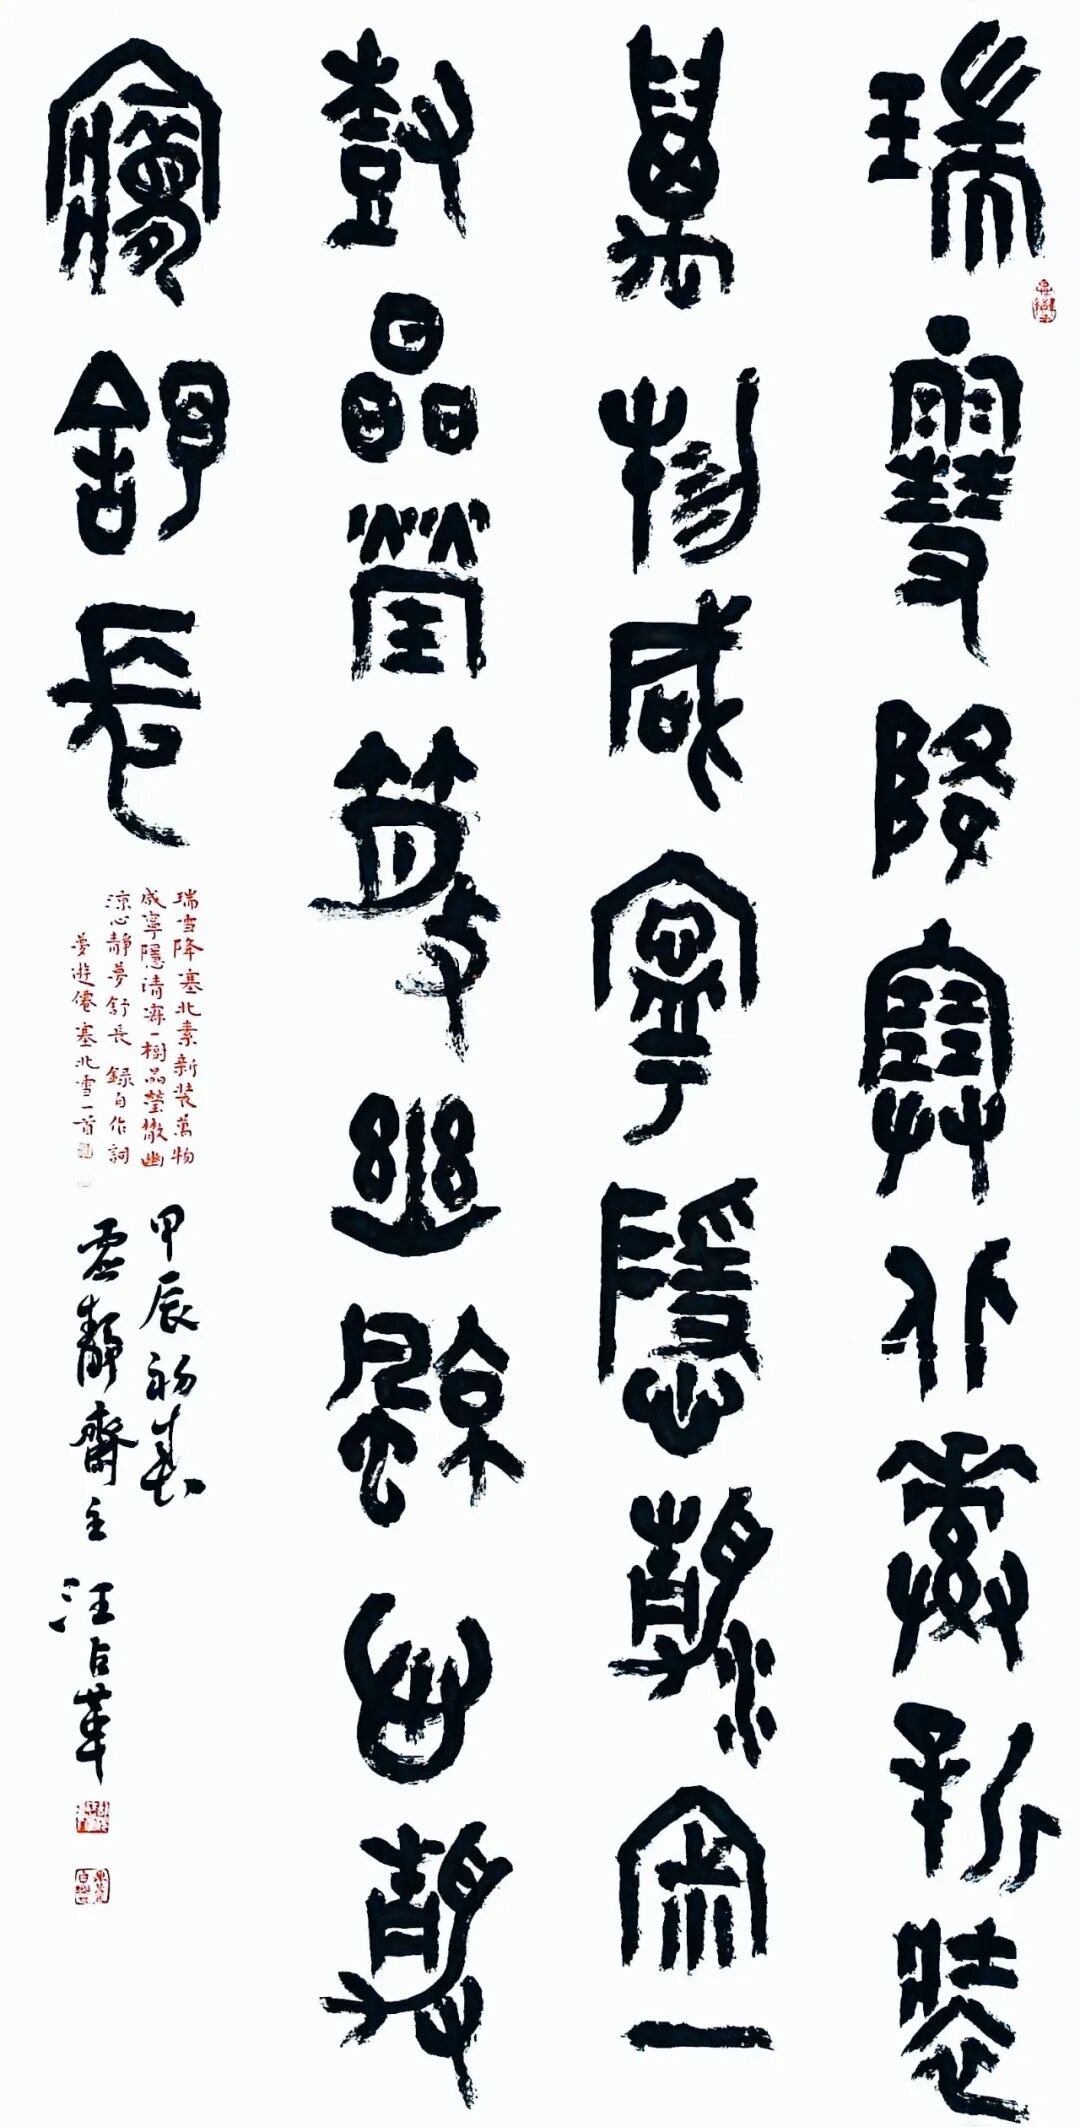 瑞雪降塞北素新装
萬物咸寧隱清寂一
樹晶瑩撒幽涼心靜
夢舒長
瑞雪降塞北素新装萬物
咸寧隱清寂一樹晶瑩撒幽
涼心靜夢舒長 録自作詞
夢遊僊塞北雪一首
甲辰初春
虛靜齋主 汪占革